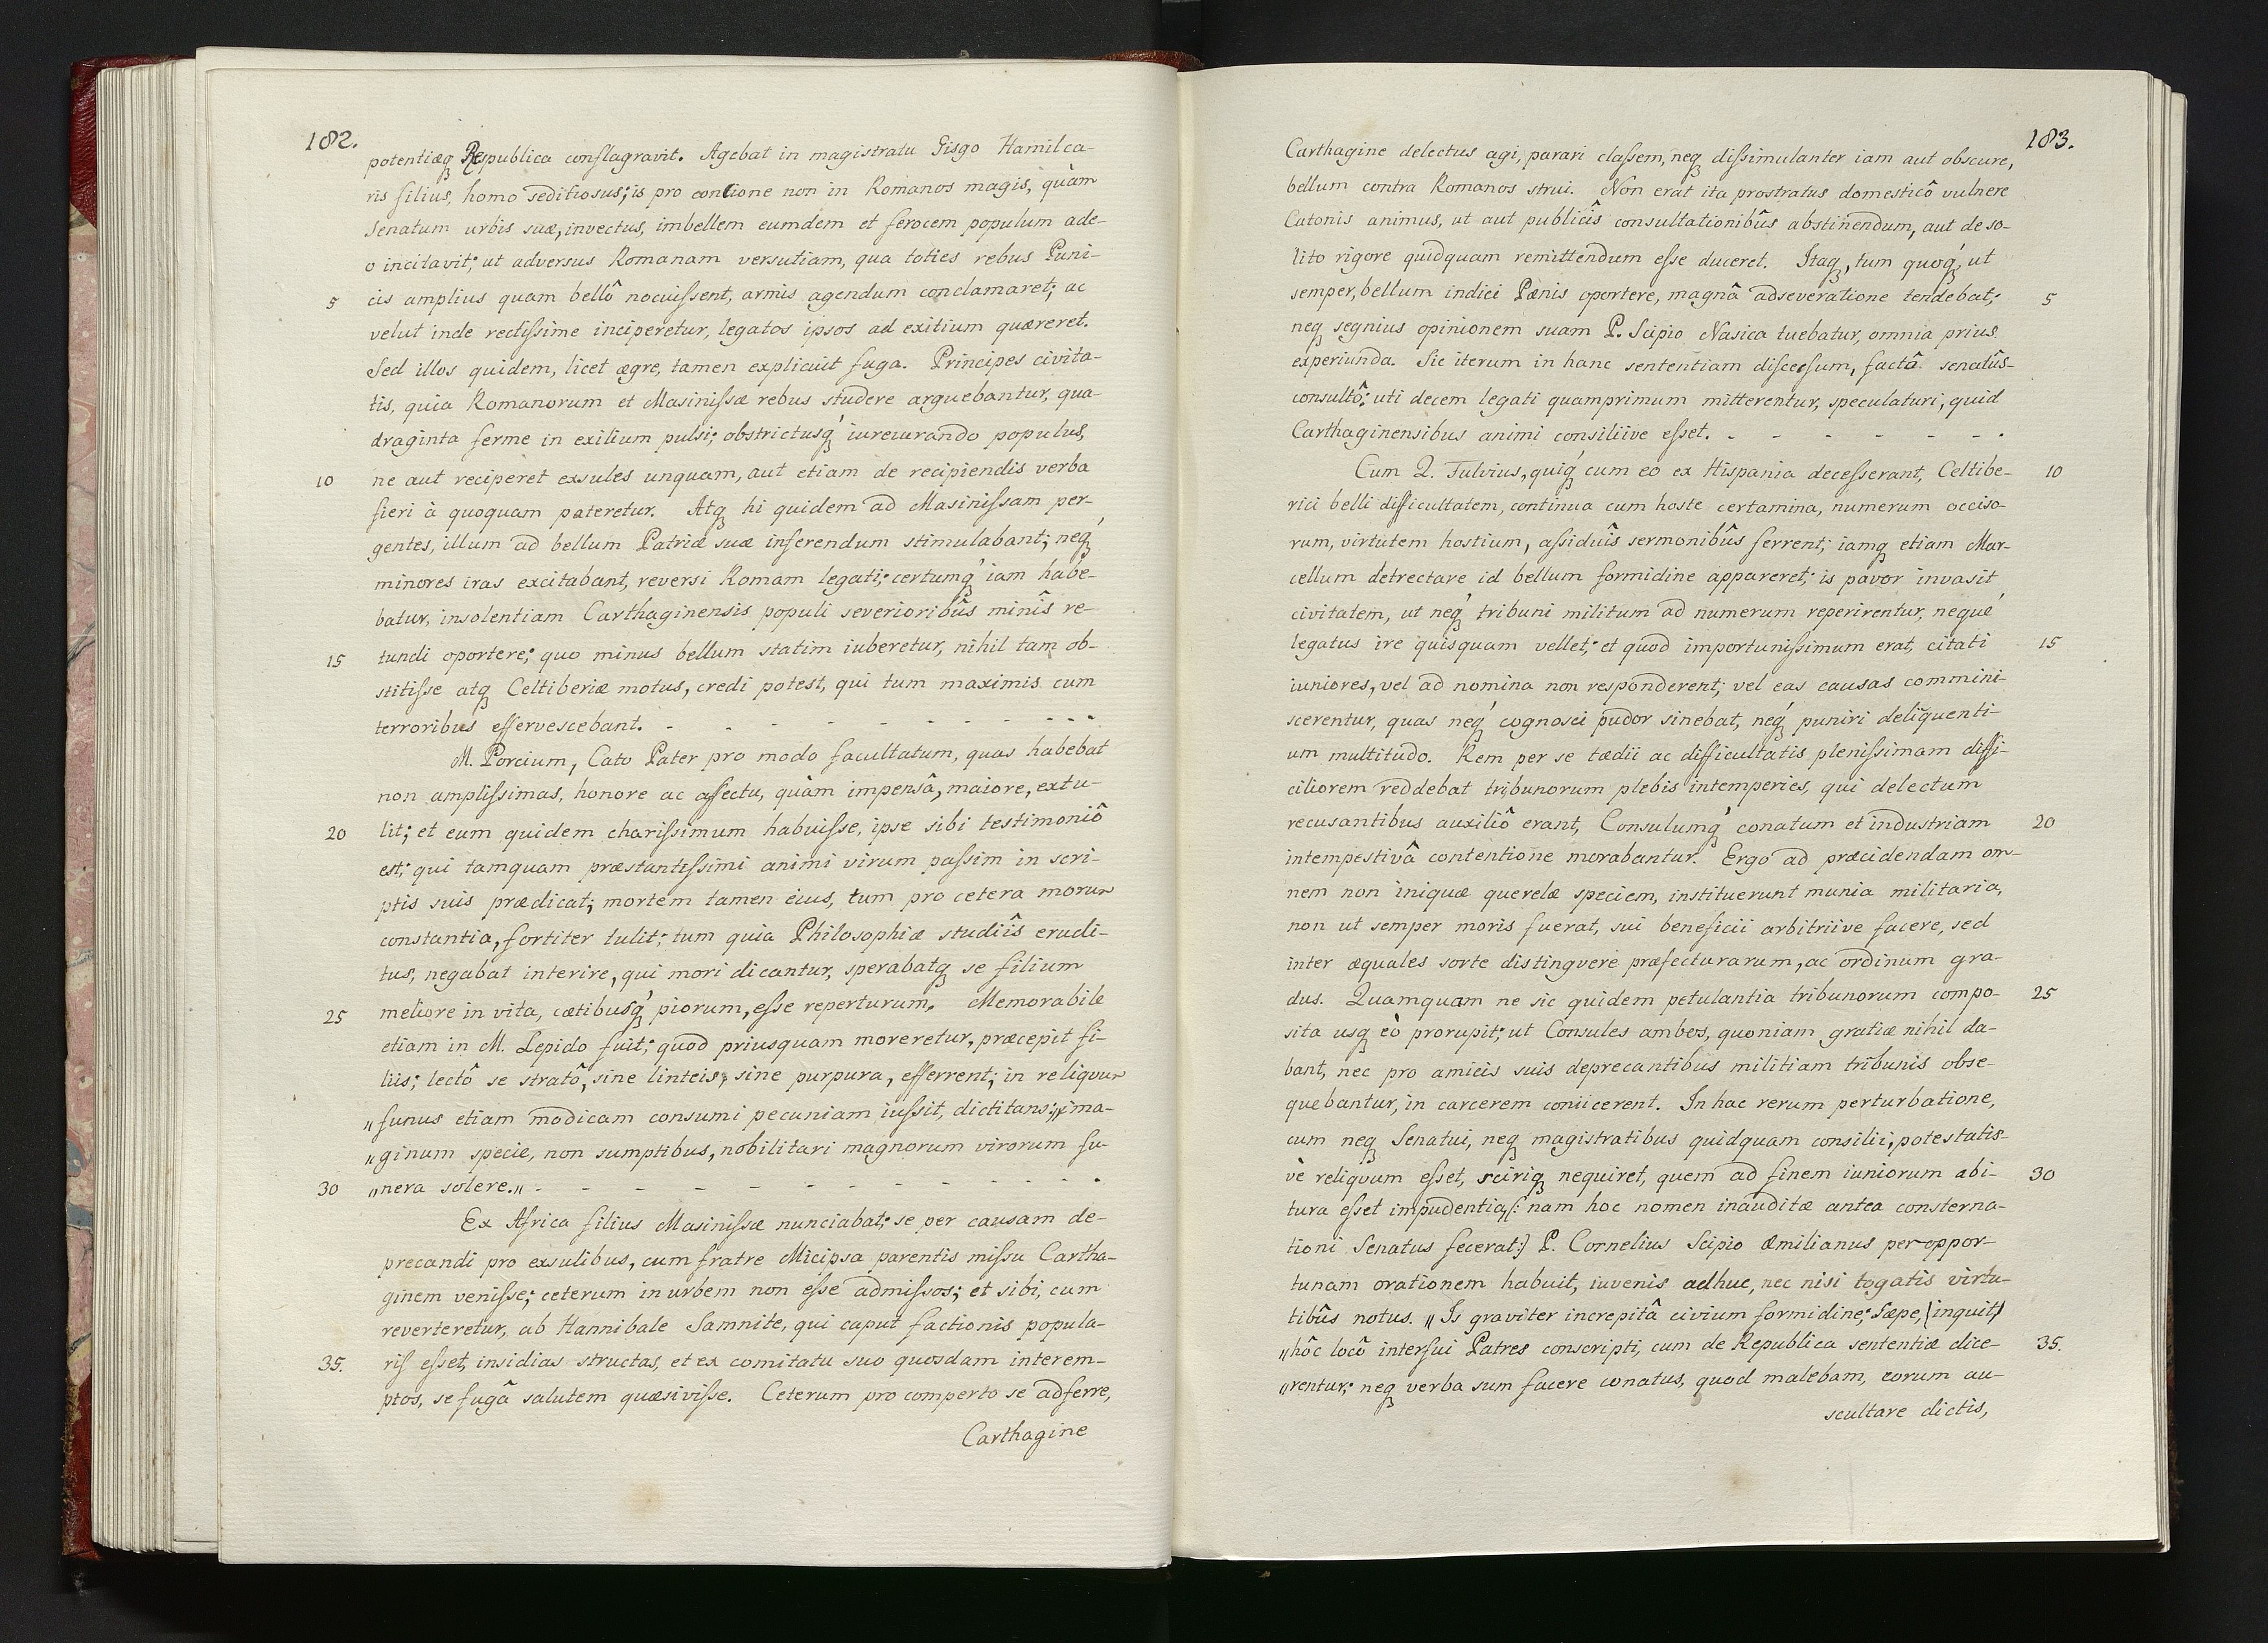 182.
potentiæq́ȝ Respublica conflagravit. Agebat in magistratu Gisgo Hamilca-
ris filius, homo seditiosus; is pro concione non in Romanos magis, quàm
Senatum urbis suæ, invectus, imbellem eumdem et ferocem populum ade-
o incitavit; ut adversus Romanam versutiam, qua toties rebus Puni-
5 cis amplius quam bellô nocuiſsent, armis agendum conclamaret; ac
velut inde rectiſsime inciperetur, legatos ipsos ad exitium quæreret.
Sed illos quidem, licet ægre, tamen explicuit fuga. Principes civita-
tis, quia Romanorum et Masiniſsæ rebus studere arguebantur, qua-
draginta ferme in exilium pulsi; obstrictusq́ȝ iureiurando populus,
10 ne aut reciperet exsules unquam, aut etiam de recipiendis verba
fieri à quoquam pateretur. Atqȝ hi quidem ad Masiniſsam per-
gentes, illum ad bellum Patriæ suæ inferendum stimulabant; neq́ȝ
minores iras excitabant, reversi Romam legati; certumq́ȝ iam habe-
batur, insolentiam Carthaginensis populi severioribûs minîs re-
15 tundi oportere; quo minus bellum statim iuberetur, nihil tam ob-
stitiſse atqȝ Celtiberiæ motus, credi potest, qui tum maximis cum
terroribus effervescebant. - - - - - - - - - -
M. Porcium, Cato Pater pro modo facultatum, quas habebat
non ampliſsimas, honore ac affectu, quàm impensâ, maiore, extu-
20 lit; et eum quidem chariſsimum habuiſse, ipse sibi testimoniô
est; qui tamquam præstantiſsimi animi virum paſsim in scri-
ptis suis prædicat; mortem tamen eius, tum pro cetera morum
constantia, fortiter tulit; tum quia Philosophiæ studiîs erudi-
tus, negabat interire, qui mori dicantur, sperabatqȝ se filium
25 meliore in vita, cœtibusq́ȝ piorum, eſse reperturum. Memorabile
etiam in M. Lepido fuit; quod priusquam moreretur, præcepit fi-
liis; lectô se stratô, sine linteis, sine purpura, efferrent; in reliquum
„funus etiam modicam consumi pecuniam iuſsit, dictitans: „ima-
„ginum specie, non sumptibus, nobilitari magnorum virorum fu-
30 „nera solere.„ - - - - - - - - - - - - -
Ex Africa filius Masiniſsæ nunciabat; se per causam de-
precandi pro exsulibus, cum fratre Micipsa parentis miſsu Cartha-
ginem veniſse; ceterum in urbem non eſse admiſsos; et sibi, cum
reverteretur, ab Hannibale Samnite, qui caput factionis popula-
35. riſ eſset, insidias structas, et ex comitatu suo quosdam interem-
ptos, se fugâ salutem quæsiviſse. Ceterum pro comperto se adferre,
Carthagine
183.
Carthagine delectus agi, parari claſsem, neqȝ diſsimulanter iam aut obscure,
bellum contra Romanos strui. Non erat ita prostratus domesticô vulnere
Catonis animus, ut aut publicîs consultationibûs abstinendum, aut de so-
lito rigore quidquam remittendum eſse duceret. Itaqȝ, tum quoq́ȝ, ut
semper, bellum indici Pœnis oportere, magnâ adseveratione tendebat; 5
neqȝ segnius opinionem suam P. Scipio Nasica tuebatur, omnia prius
experiunda. Sic iterum in hanc sententiam disceſsum, factô senatûs-
consultô; uti decem legati quamprimum mitterentur, speculaturi, quid
Carthaginensibus animi consiliive eſset. - - - - - - -
Cum Q. Fulvius, quiq́ȝ cum eo ex Hispania deceſserant, Celtibe- 10
rici belli difficultatem, continua cum hoste certamina, numerum occiso-
rum, virtutem hostium, aſsiduîs sermonibûs ferrent; iamqȝ etiam Mar-
cellum detrectare id bellum formidine appareret; is pavor invasit
civitatem, ut neq́ȝ tribuni militum ad numerum reperirentur, nequé
legatus ire quisquam vellet; et quod importuniſsimum erat, citati 15
iuniores, vel ad nomina non responderent; vel eas causas commini-
scerentur, quas neq́ȝ cognosci pudor sinebat, neq́ȝ puniri deliquenti-
um multitudo. Rem per se tædii ac difficultatis pleniſsimam diffi-
ciliorem reddebat tribunorum plebis intemperies, qui delectum
recusantibus auxiliô erant, Consulumq́ȝ conatum et industriam 20
intempestivâ contentione morabantur. Ergo ad præcidendam om-
nem non iniquæ querelæ speciem, instituerunt munia militaria,
non ut semper moris fuerat, sui beneficii arbitriive facere, sed
inter æquales sorte distinguere præfecturarum, ac ordinum gra-
dus. Quamquam ne sic quidem petulantia tribunorum compo- 25
sita usqȝ eò prorupit; ut Consules ambos, quoniam gratiæ nihil da-
bant, nec pro amicis suis deprecantibus militiam tribunis obse-
quebantur, in carcerem coniicerent. In hac rerum perturbatione,
cum neqȝ Senatui, neqȝ magistratibus quidquam consilii, potestatis-
vè reliquum eſset, sciriqȝ nequiret, quem ad finem iuniorum abi- 30
tura eſset impudentia, (: nam hoc nomen inauditæ antea consterna-
tioni Senatus fecerat:) P. Cornelius Scipio Æmilianus peroppor-
tunam orationem habuit, iuvenis adhuc, nec nisi togatis virtu-
tibûs notus. „Is graviter increpitâ civium formidine; Sæpe, (inquit)
„hôc locô interfui Patres conscripti, cum de Republica sententiæ dice- 35.
„rentur; neqȝ verba sum facere conatus, quod malebam, eorum au-
scultare dictis,